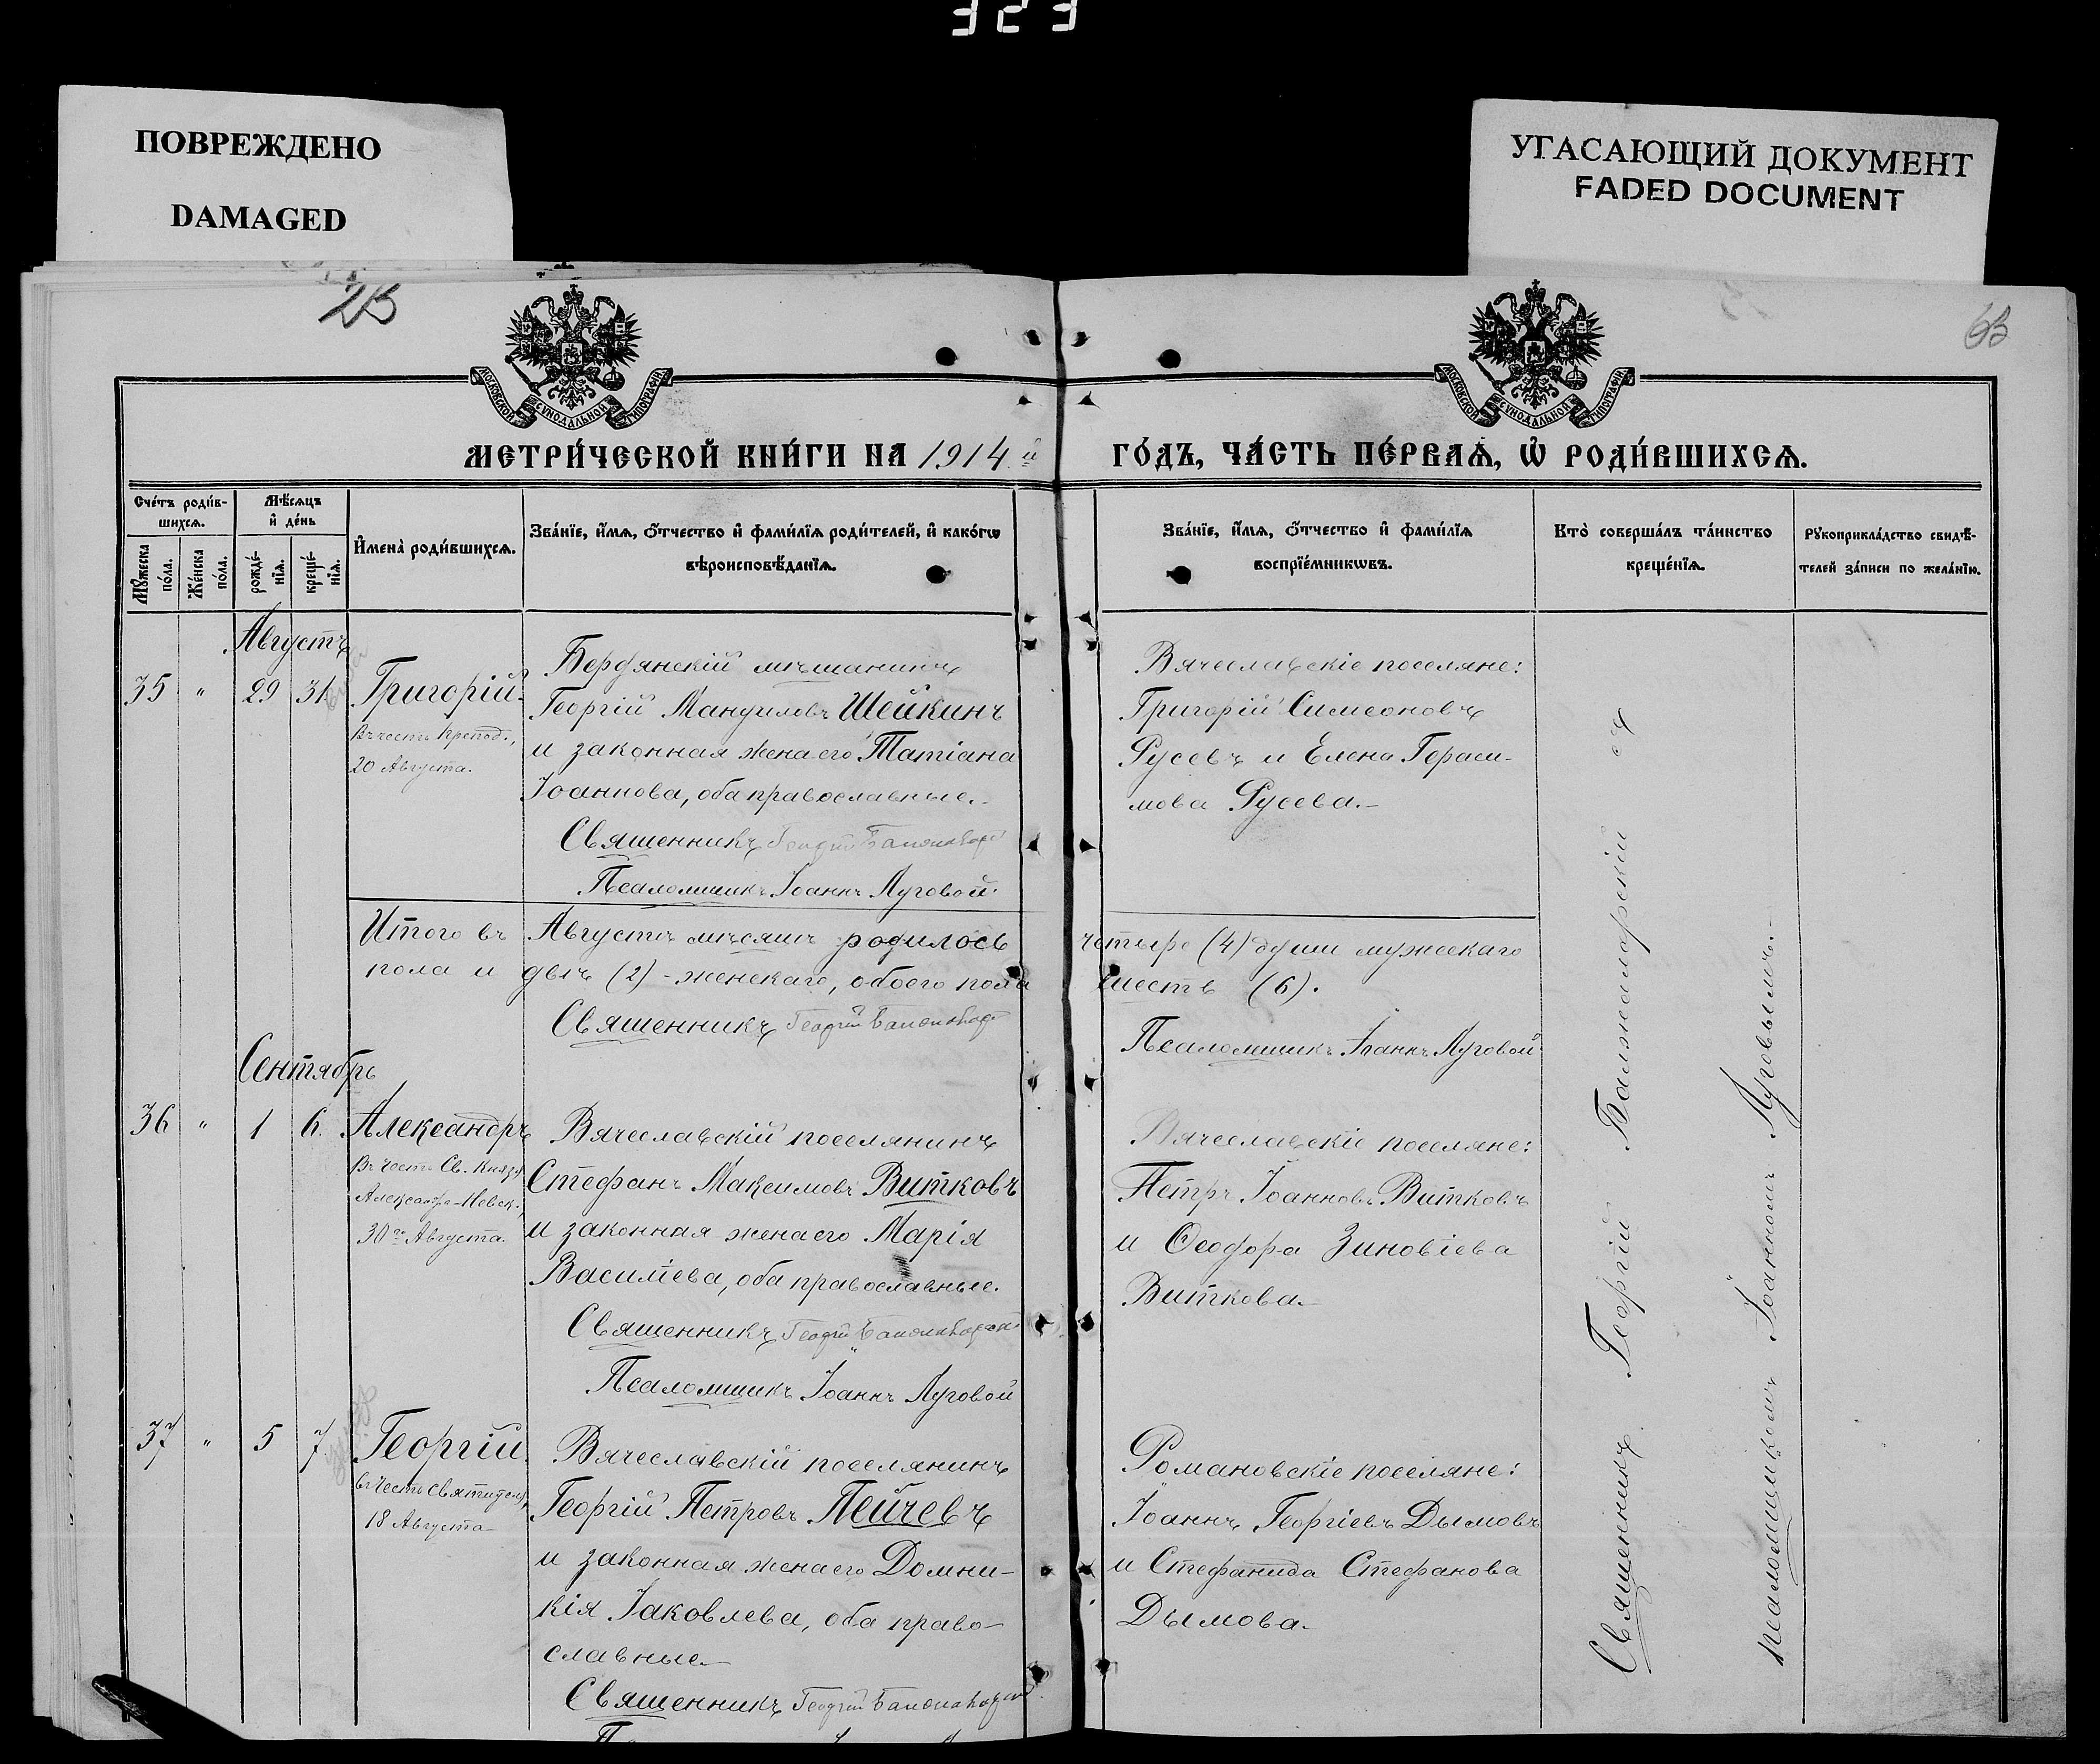 323
ПОВРЕЖДЕНО
DAMAGED
УГАСАЮЩИЙ ДОКУМЕНТ
FADED DOCUMENT
63
МОСКОВСКОЙ СѴНОДАЛЬНОЙ ТИПОГРАФІИ
МОСКОВСКОЙ СѴНОДАЛЬНОЙ ТИПОГРАФІИ
МЕТРИ́ЧЕСКОЙ КНИ́ГИ НА 1914й ГО́ДЪ, ЧА́СТЬ ПЕ́РВАѦ, Ѡ РОДИ́ВШИХСѦ.
Сче́тъ роди́в-
шихсѧ.
Мꙋ́жеска
по́ла.
Же́нска
по́ла.
Мѣ́сѧцъ
и҆ де́нь
рожде́-
нїѧ.
креще́-
нїѧ.
И҆мена̀ роди́вшихсѧ.
Зва́нїе, и҆́мѧ, ѻ҆́тчество и҆ фами́лїѧ роди́телей, и҆ како́гѡ
вѣроисповѣ́данїѧ.
Зва́нїе, и҆́мѧ, ѻ҆́тчество и҆ фами́лїѧ
воспрїе́мникѡвъ.
Кто̀ соверша́лъ та́инство
креще́нїѧ.
Рꙋкоприкла́дство свидѣ́-
телей за́писи по жела́нїю.
Августъ
35 " 29 31 Григорій.
въ честь препод.,
20 Августа.
Бердянскій мѣщанинъ
Георгій Мануиловъ Шейкинъ
и законная жена его Татіана
Іоаннова, оба православные.-
Священникъ Георгій
Псаломщикъ Іоаннъ Луговой.
Вячеславскіе поселяне:
Григорій Симеоновъ
Русевъ и Елена Гераси-
мова Русева.-
Итого въ Августѣ мѣсяцѣ родилось четыре (4) души мужескаго
пола и двѣ (2) - женскаго, обоего пола шесть (6).
Священникъ Георгій
Псаломщикъ Іоаннъ Луговой
Сентябрь
36 " 1 6. Александръ
въ честь Св. Князя
Александра-Невск.,
30го Августа.
Вячеславскій поселянинъ
Стефанъ Максимовъ Витковъ
и законная жена его Марія
Василіева, оба православные.
Священникъ Георгій
Псаломщикъ Іоаннъ Луговой
Вячеславскіе поселяне:
Петръ Іоанновъ Витковъ
и Ѳеодора Зиновіева
Виткова.-
37 " 5 7. Георгій.
въ честь Святителя,
18 Августа-
Вячеславскій поселянинъ
Георгій Петровъ Пейчевъ
и законная жена его Домни-
кія Іаковлева, оба право-
славные.-
Священникъ Георгій
Романовскіе поселяне:
Іоаннъ Георгіевъ Дымовъ
и Стефанида Стефанова
Дымова.-
Священникъ Георгій съ
псаломщикомъ Іоанномъ Луговымъ.-